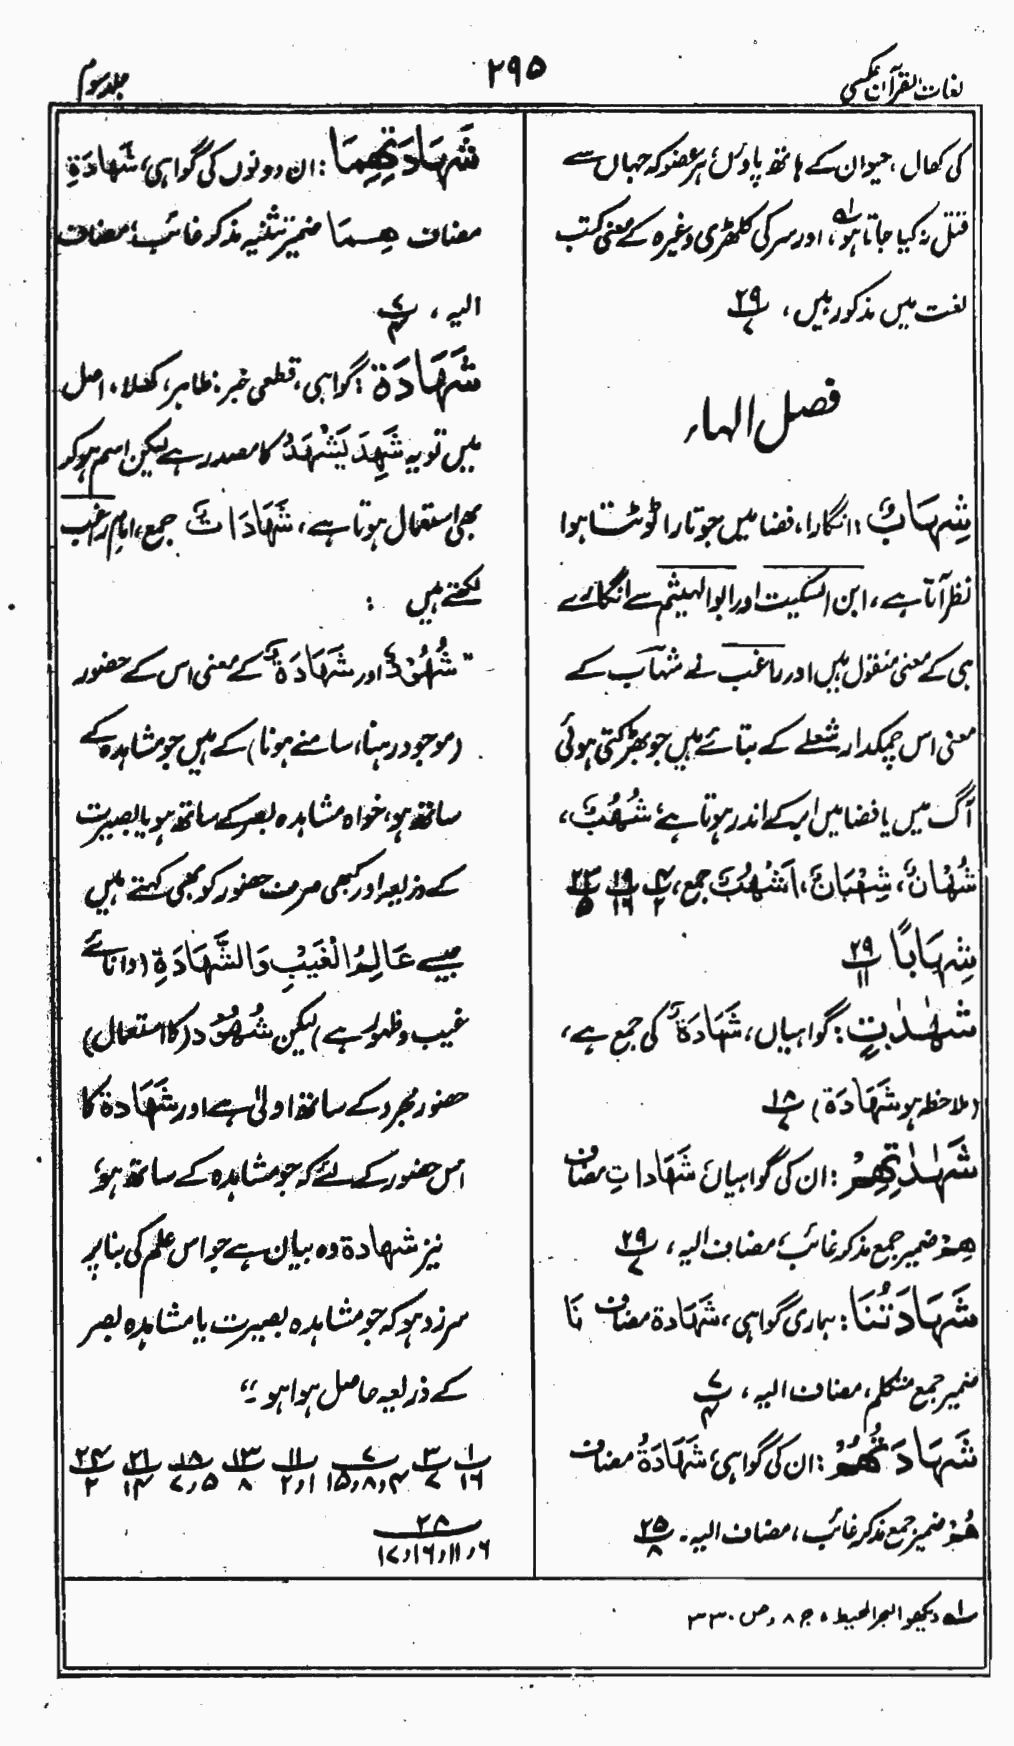 لغات القرآن عکسی
۲۹۵
جلد سوم
کی کھال، حیوان کے ہاتھ پاؤں، ہر عضو کہ جہاں سے
قتل نہ کیا جاتا ہو ؂۱، اور سر کی کلھڑی وغیرہ کے معنی کتب
لغت میں مذکور ہیں، ۲۹/۷
فصل الہاء
شِہَابٌ: انگارا، فضا میں جو تارا ٹوٹتا ہوا
نظر آتا ہے، ابن السکیت اور ابو الہیثم سے انگارے
ہی کے معنی منقول ہیں اور راغب نے شہاب کے
معنی اس چمکدار شعلے کے بتائے ہیں جو بھڑکتی ہوئی
آگ میں یا فضا میں ابر کے اندر ہوتا ہے، شُہُبٌ،
شُہْبَانٌ، شِہْبَانٌ، اَشْہُبٌ جمع، ۱۴/۲ ۱۹/۱۶ ۲۳/۵
شِہَابًا ۲۹/۱۱
شَہٰدٰتٍ: گواہیاں، شَہَادَةٌ کی جمع ہے،
(ملاحظہ ہو شَہَادَة) ۱۸/۷
شَہٰدٰتِہِمْ: ان کی گواہیاں، شَہَادَاتِ مضاف
ہِمْ ضمیر جمع مذکر غائب، مضاف الیہ، ۲۹/۷
شَہَادَتُنَا: ہماری گواہی، شَہَادَة مضاف نَا
ضمیر جمع متکلم، مضاف الیہ، ۷/۴
شَہَادَتُہُمْ: ان کی گواہی، شَہَادَةُ مضاف
ہُمْ ضمیر جمع مذکر غائب، مضاف الیہ۔ ۲۵/۸
شَہَادَتِہِمَا: ان دونوں کی گواہی، شَہَادَةِ
مضاف ہِمَا ضمیر تثنیہ مذکر غائب، مضاف
الیہ، ۷/۴
شَہَادَة: گواہی، قطعی خبر، ظاہر، کھلا، اصل
میں تو یہ شَہِدَ یَشْہَدُ کا مصدر ہے لیکن اسم ہو کر
بھی استعمال ہوتا ہے، شَہَادَاتٌ جمع، امام راغب
لکھتے ہیں :
”شُہُوْدٌ اور شَہَادَةٌ کے معنی اس کے حضور
(موجود رہنا، سامنے ہونا) کے ہیں جو مشاہدہ کے
ساتھ ہو، خواہ مشاہدہ بصر کے ساتھ ہو یا بصیرت
کے ذریعہ اور کبھی صرف حضور کو بھی کہتے ہیں
جیسے عَالِمُ الْغَیْبِ وَالشَّہَادَةِ (دانائے
غیب و ظہور ہے) لیکن شُہُوْد (کا استعمال)
حضور مجرد کے ساتھ اولیٰ ہے اور شَہَادَة کا
اس حضور کے لئے کہ جو مشاہدہ کے ساتھ ہو،
نیز شہادة وہ بیان ہے جو اس علم کی بنا پر
سرزد ہو کہ جو مشاہدہ بصیرت یا مشاہدہ بصر
کے ذریعہ حاصل ہوا ہو۔“
۱/۱۶ ۳/۷ ۷/۴،۸،۱۵ ۱۱/۱،۲ ۱۳/۸ ۱۸/۵،۷ ۲۱/۱۴ ۲۴/۲
۲۸/۶،۱۱،۱۶،۱۷
؂۱ دیکھو البحر المحیط، ج ۸، ص ۳۳۰